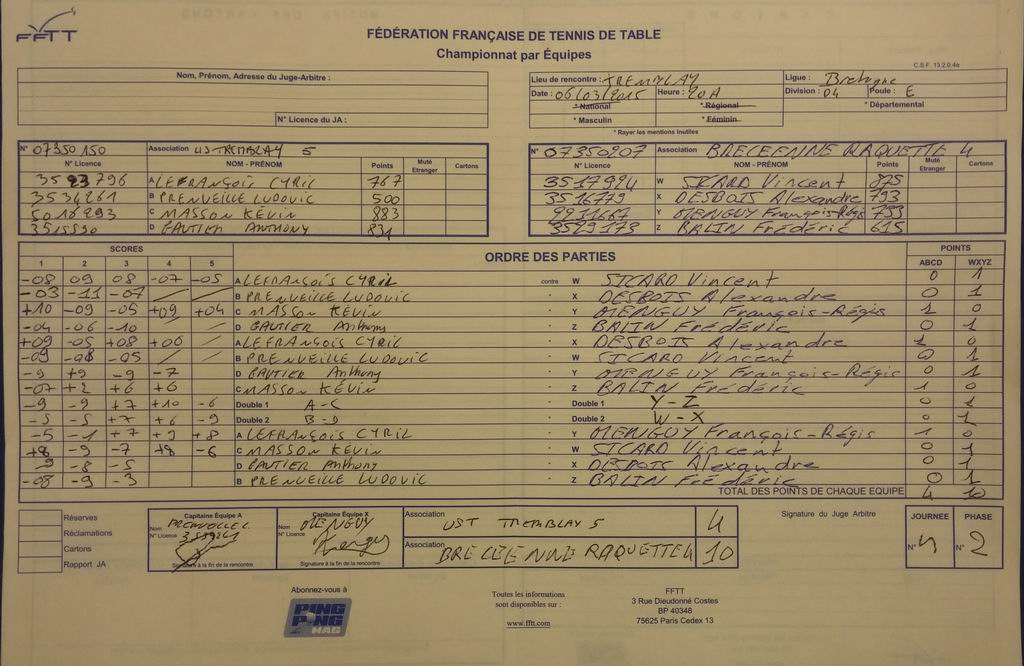 FFTT
FÉDÉRATION FRANÇAISE DE TENNIS DE TABLE
Championnat par Équipes
C.S.F. 13.2.0.4a
Nom, Prénom, Adresse du Juge-Arbitre :
N° Licence du JA :
Lieu de rencontre : TREMBLAY Ligue : Bretagne
Date : 06/03/2015 Heure : 20H Division : 04 Poule : E
* National * Régional * Départemental
* Masculin * Féminin
* Rayer les mentions inutiles
N° 07350150 Association US TREMBLAY 5
N° Licence NOM - PRÉNOM Points Muté Etranger Cartons
3523796 A LEFRANÇOIS CYRIL 767
3534261 B PRENVEILLE LUDOVIC 500
5016293 C MASSON KÉVIN 883
3515590 D GAUTIER ANTHONY 834
N° 07350207 Association BRECEENNE RAQUETTE 4
N° Licence NOM - PRÉNOM Points Muté Etranger Cartons
3517924 W SICARD Vincent 875
3516779 X DESBOIS Alexandre 793
Y MENGUY François-Régis 733
3529173 Z BALIN Frédéric 615
SCORES ORDRE DES PARTIES POINTS
1 2 3 4 5 ABCD WXYZ
-08 09 08 -07 -05 A LEFRANÇOIS CYRIL contre W SICARD Vincent 0 1
-03 -11 -07 B PRENVEILLE LUDOVIC X DESBOIS Alexandre 0 1
+10 -09 -05 +09 +04 C MASSON KÉVIN Y MENGUY François-Régis 1 0
-04 -06 -10 D GAUTIER Anthony Z BALIN Frédéric 0 1
+09 -05 +08 +06 A LEFRANÇOIS CYRIL X DESBOIS Alexandre 1 0
-09 -08 -05 B PRENVEILLE LUDOVIC W SICARD Vincent 0 1
-9 +9 -9 -7 D GAUTIER Anthony Y MENGUY François-Régis 0 1
-07 +2 +6 +6 C MASSON KÉVIN Z BALIN Frédéric 1 0
-9 -9 +7 +10 -6 Double 1 A-C Double 1 Y-Z 0 1
-5 -5 +7 +6 -9 Double 2 B-D Double 2 W-X 0 1
-5 -1 +7 +9 +8 A LEFRANÇOIS CYRIL Y MENGUY François-Régis 1 0
+8 -9 -7 +8 -6 C MASSON KÉVIN W SICARD Vincent 0 1
-9 -8 -5 D GAUTIER Anthony X DESBOIS Alexandre 0 1
-08 -9 -3 B PRENVEILLE LUDOVIC Z BALIN Frédéric 0 1
TOTAL DES POINTS DE CHAQUE EQUIPE 4 10
Réserves
Réclamations
Cartons
Rapport JA
Capitaine Équipe A
Nom PRENVEILLE L
N° Licence
Signature à la fin de la rencontre
Capitaine Équipe X
Nom MENGUY
N° Licence
Signature à la fin de la rencontre
Association UST TREMBLAY 5 4
Association BRECEENNE RAQUETTE 4 10
Signature du Juge Arbitre
JOURNEE PHASE
N° 4 N° 2
Abonnez-vous à
PING PONG MAG
Toutes les informations
sont disponibles sur :
www.fftt.com
FFTT
3 Rue Dieudonné Costes
BP 40348
75625 Paris Cedex 13